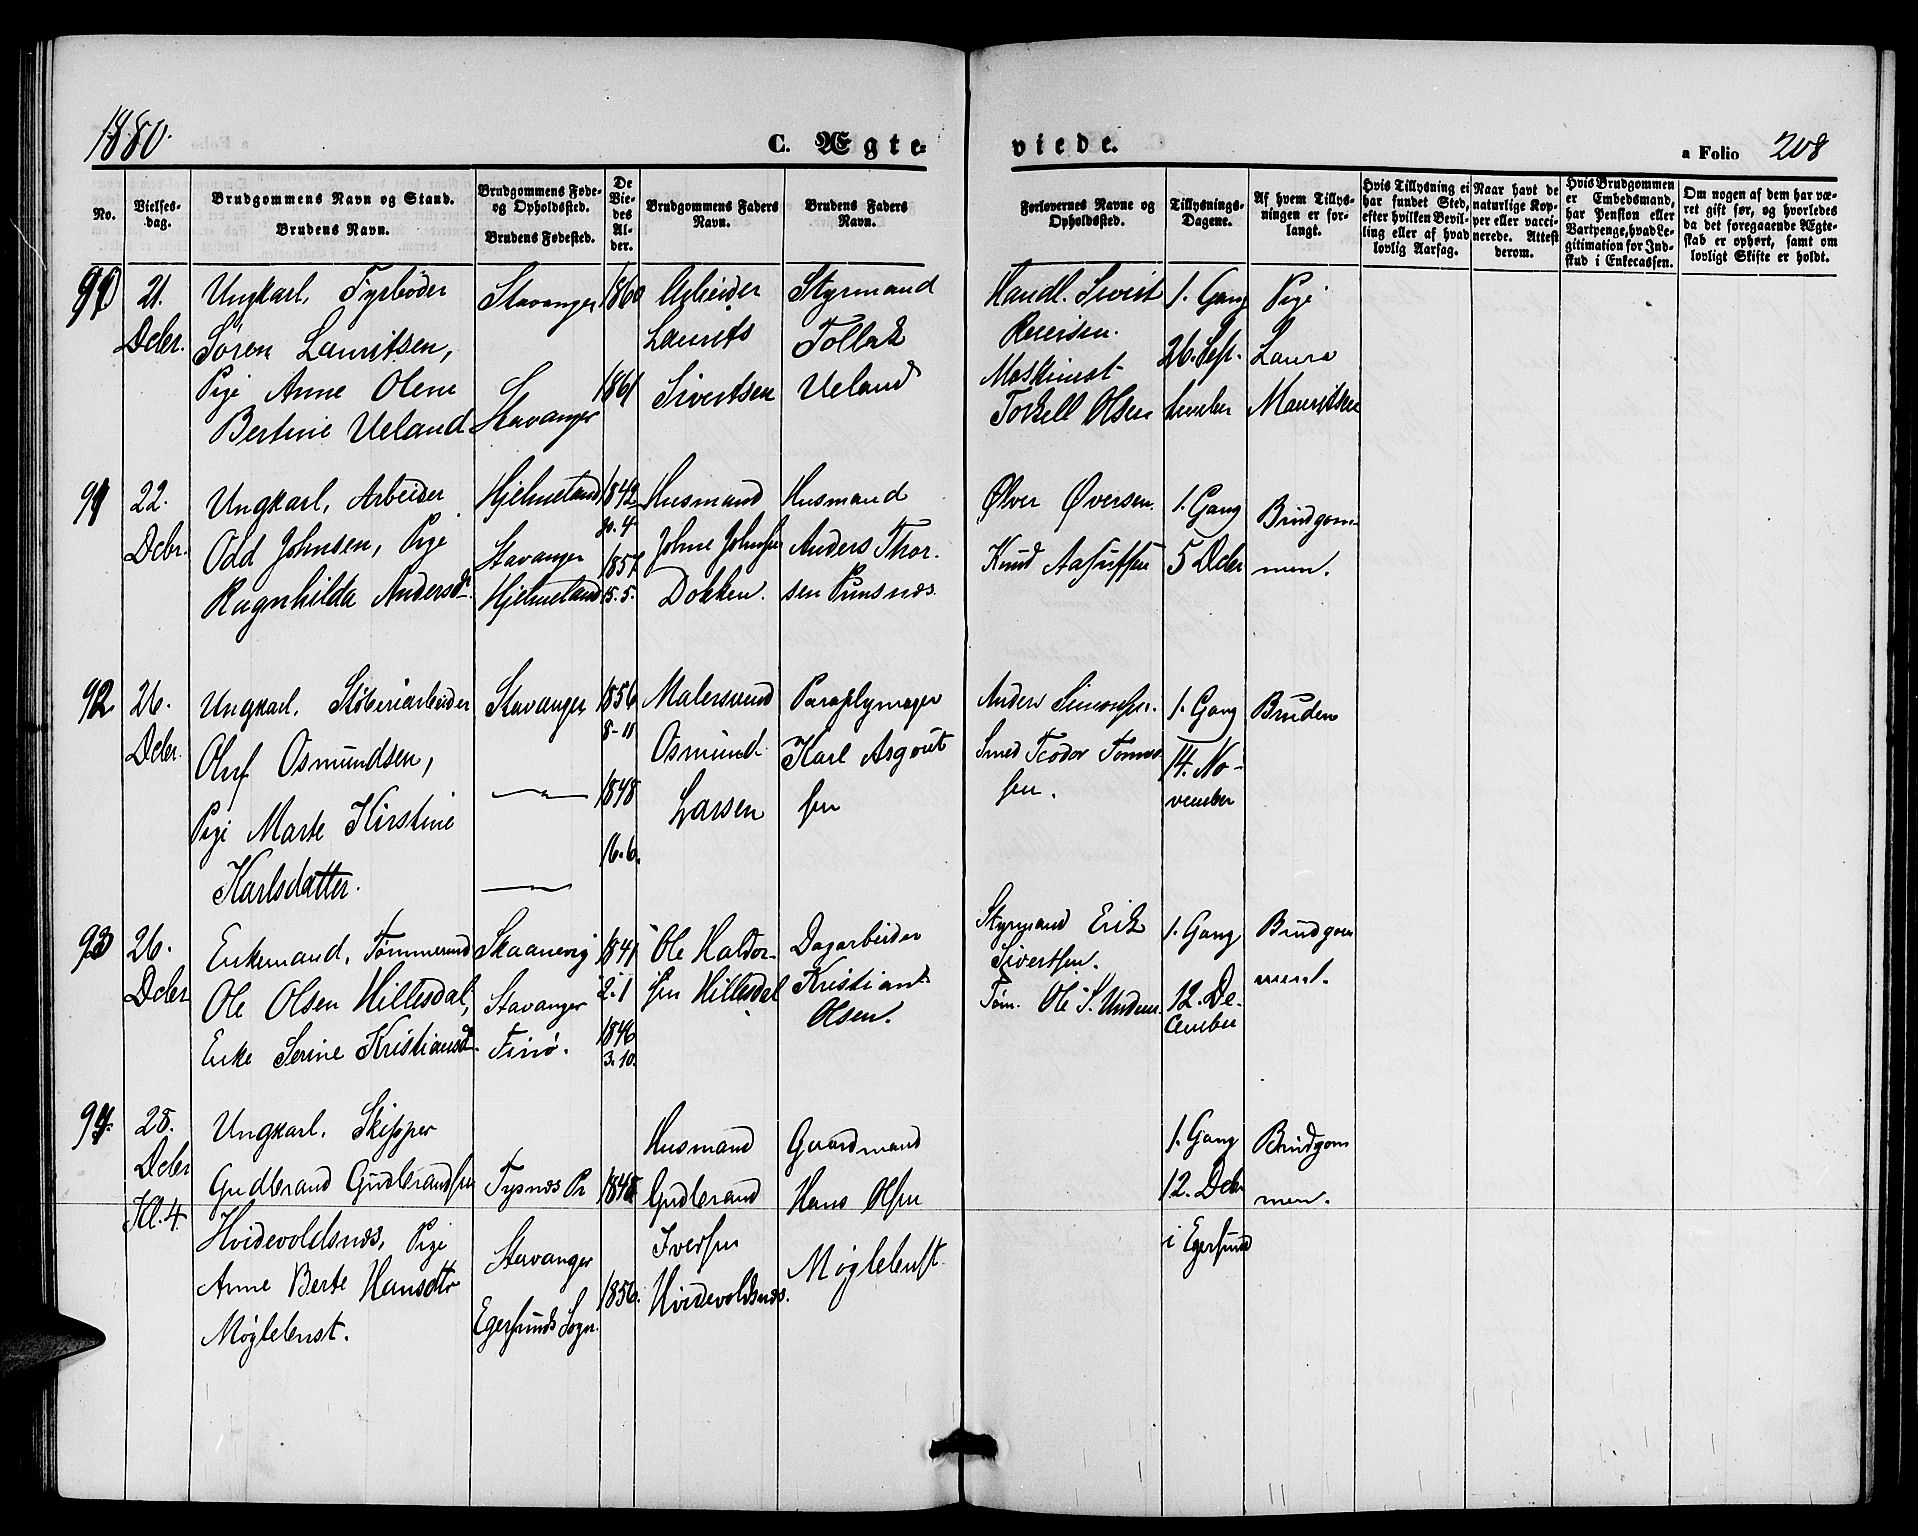 1880.
C. Ægte-
viede.
a Folio 208
No.
Vielses-
dag.
Brudgommens Navn og Stand.
Brudens Navn.
Brudgommens Føde-
og Opholdssted.
Brudens Fødested.
De
Vie-
des
Al-
der.
Brudgommens Faders
Navn.
Brudens Faders
Navn.
Forlovernes Navne og
Opholdssted.
Tillysnings-
Dagene.
Af hvem Tillys-
ningen er for-
langt.
Hvis Tillysning ei
har fundet Sted,
efter hvilken Bevil-
ling eller af hvad
lovlig Aarsag.
Naar havt de
naturlige Kop-
per eller vacci-
nerede. Attest
derom.
Hvis Brudgommen
er Embedsmand,
har Pension eller
Vartpenge, hvad Le-
gitimation for Ind-
skud i Enkecassen.
Om nogen af dem har væ-
ret gift før, og hvorledes
da det foregaaende Ægte-
skab er ophørt, samt om
lovligt Skifte er holdt.
90
21.
Dcbr.
Ungkarl, Fyrbøder
Søren Lauritsen,
Pige Anne Olene
Bertine Ueland
Stavanger
S
Stavanger
1860
1861
Arbeider
Laurits
Sivertsen
Styrmand
Tollak
Ueland
Handl. Sivert
Reiersen.
Maskinist
Torkell Olsen
1. Gang
26. Sep-
tember
Pige
Laura
Mauritsen
91
22.
Dcbr.
Ungkarl, Arbeider
Odd Johnsen, Pige
Ragnhilda Andersd.
Hjelmeland
Stavanger
Hjelmeland
1842
20.4
1857
15.5.
Husmand
Johne Johnsen
Dokken.
Husmand
Anders Thor-
sen Punsnæs.
Ølver Øversen.
Knud Aasulfsen
1. Gang
5 Dcbr
Brudgom-
men.
92
26.
Dcbr.
Ungkarl. Støberiarbeider
Oluf Osmundsen,
Pige Marte Kirstine
Karlsdatter.
Stavanger
—"—
—"—
1856
8-11
1848
16.6.
Malersvend
Osmund
Larsen
Paraplymager
Karl Asgout
sen
Anders Simonsen.
Smed Teodor Tomas
sen.
1. Gang
14. No-
vember
Bruden
93
26.
Dcbr
Enkemand, Tømmermd
Ole Olsen Hillesdal,
Enke Serine Kristiansd.
Skaanevig
Stavanger
Finø.
1841
2.1
1846
3.10.
Ole Haldor-
sen Hillesdal
Dagarbeider
Kristian
Olsen.
Styrmand Erik
Sivertsen.
Tøm. Ole S. Undem
1. Gang
12. De-
cember
Brudgom
men.
94.
28.
Dcbr
Kl. 4
Ungkarl. Skipper
Gudbrand Gudbrandsen
Hvidevoldsnæs, Pige
Anne Berte Hansdtr
Møglebust.
Tysnæs Pr
Stavanger
Egersunds Sogn.
1848
1856.
Husmand
Gudbrand
Iversen
Hvidevoldsnæs.
Gaardmand
Hans Olsen
Møglebust.
1. Gang
12. Dcbr
i Egersund
Brudgom
men.